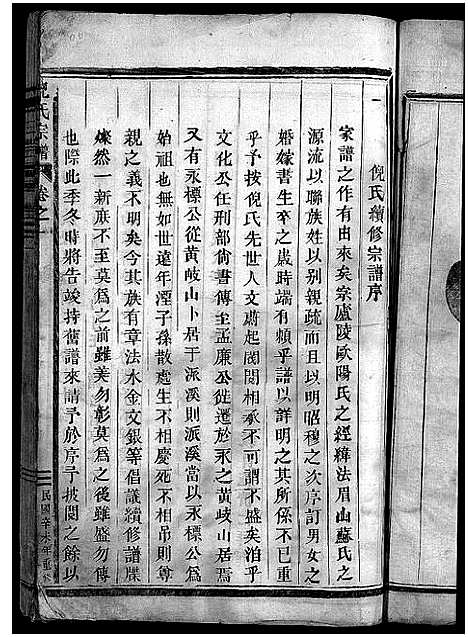 倪氏續修宗譜序
家譜之作有由來矣宗廬陵歐陽氏之經緯法眉山蘇氏之
源流以聯族姓以别親疏而且以明昭穆之次序訂男女之
婚嫁書生卒之歲時端有頼乎譜以詳明之其所係不已重
乎予按倪氏先世人文蔚起閥閱相承不可謂不盛矣洎乎
文化公任刑部尚書傳至孟廉公徙遷於永之黄岐山居焉
又有永標公從黄岐山卜居于派溪則派溪當以永標公爲
始祖也無如世遠年湮子孫散處生不相慶死不相吊則尊
親之義不明矣今其族有章法水金文銀等倡議續修譜牒
燦然一新庶不至莫爲之前雖美勿彰莫爲之後雖盛勿傳
也際此季冬時將告竣持舊譜來請予於序予披閱之餘以
倪氏宗譜 卷之一
民國辛未年重修